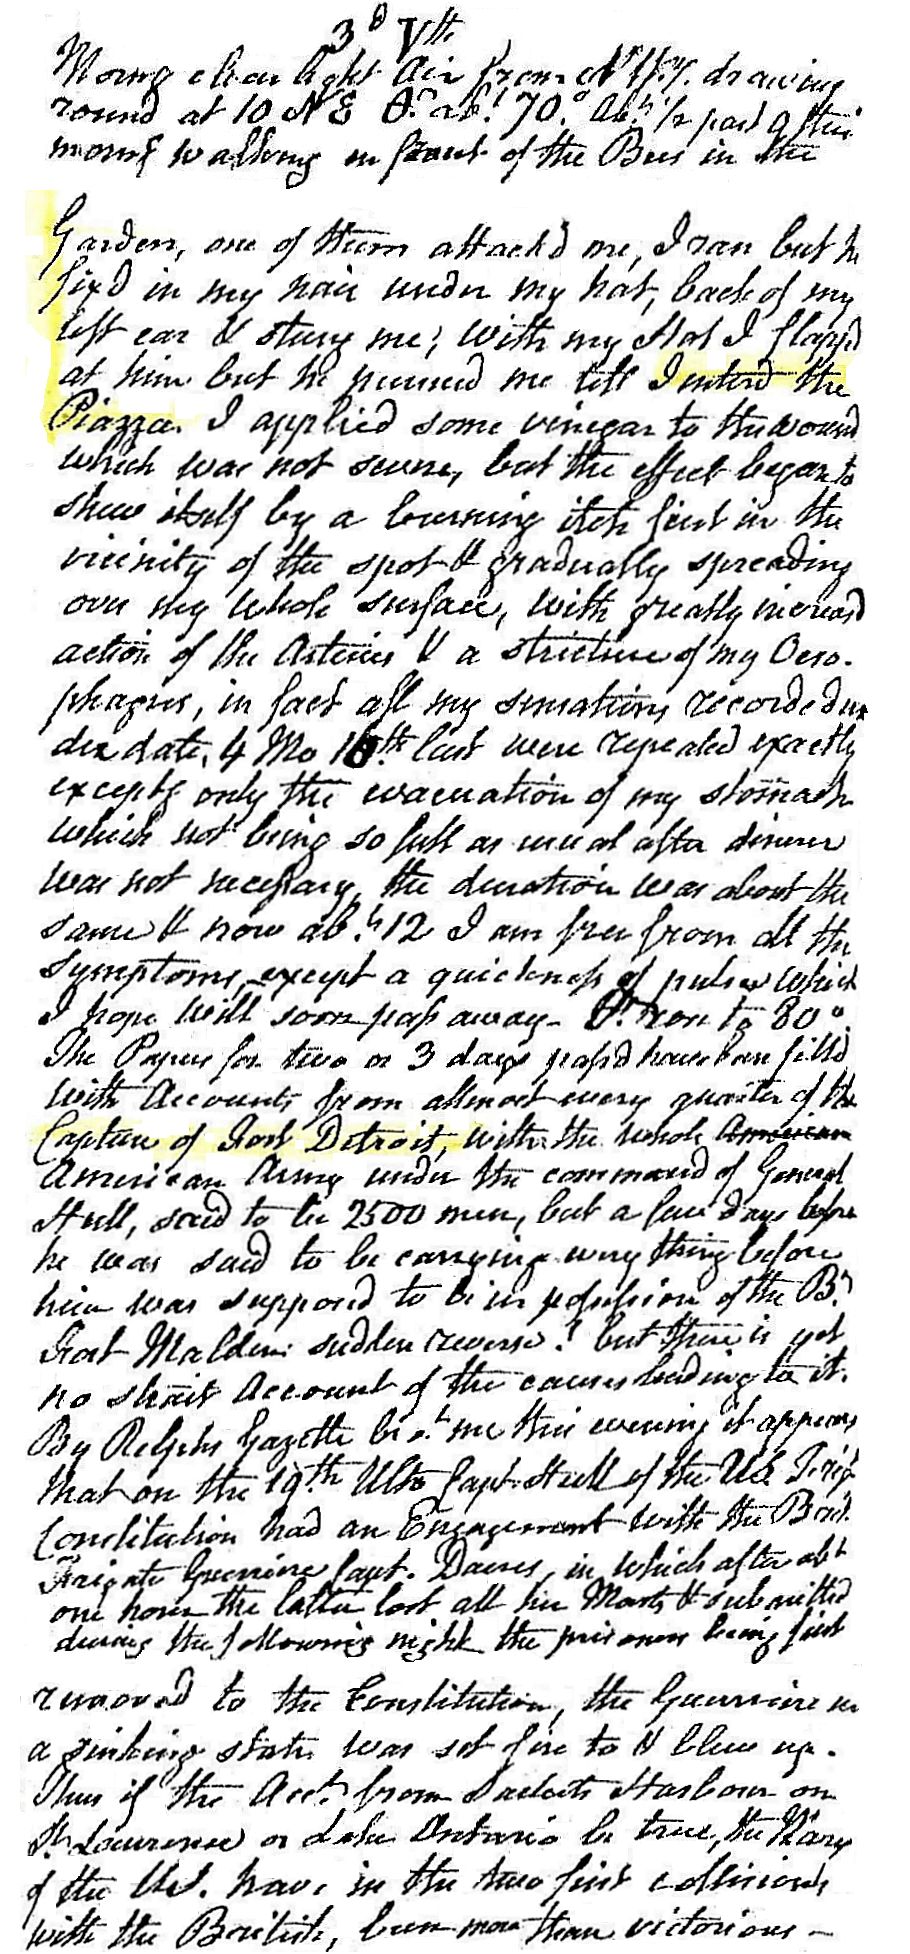 3d Vth
Morng clear light Air from N W. drawing
round at 10 N E Tr. abt. 70°. Abt. ½ past 9 this
morng walking in front of the Bees in the
Garden, one of them attack'd me, I ran but he
fix'd in my hair under my hat, back of my
left ear & stung me; with my Hat I flapp'd
at him but he pursued me till I enterd the
Piazza. I applied some vinegar to the wound
which was not severe, but the effect began to
shew itself by a burning itch first in the
vicinity of the spot & gradually spreading
over my whole surface, with greatly increasd
action of the Arteries & a stricture of my Oeso-
phagus, in fact all my sensations recorded un
der date, 4 Mo 16th last were repeated exactly
exceptg only the evacuation of my stomach
which not being so full as usual after dinner
was not necessary, the duration was about the
same & now abt. 12 I am free from all the
symptoms, except a quickness of pulse which
I hope will soon pass away - Tr. rose to 80°.
The Papers for two or 3 days pass'd have been filld
with Accounts from allmost every quarter of the
Capture of Fort Detroit, with the whole American
American Army under the command of General
Hull, said to be 2500 men, but a few days before
he was said to be carrying every thing before
him was supposd to be in possession of the B.
Fort Malden: sudden reverse! but there is yet
no strait Account of the causes leading to it.
By Relphs Gazette brot. me this evening it appears
that on the 19th Ulto Capt. Hull of the US. Frigt
Constitution had an Engagement with the Brit.
Frigate Guerriere Capt. Dacres, in which after abt
one hour the latter lost all her Masts & submitted
during the following night the prisoners being first
removed to the Constitution, the Guerriere in
a sinking state was set fire to & blew up.
Thus if the Acct. from Sackets Harbour on
St. Lawrence or Lake Ontario be true, the Navy
of the US. have in the two first collisions
with the British, been more than victorious -